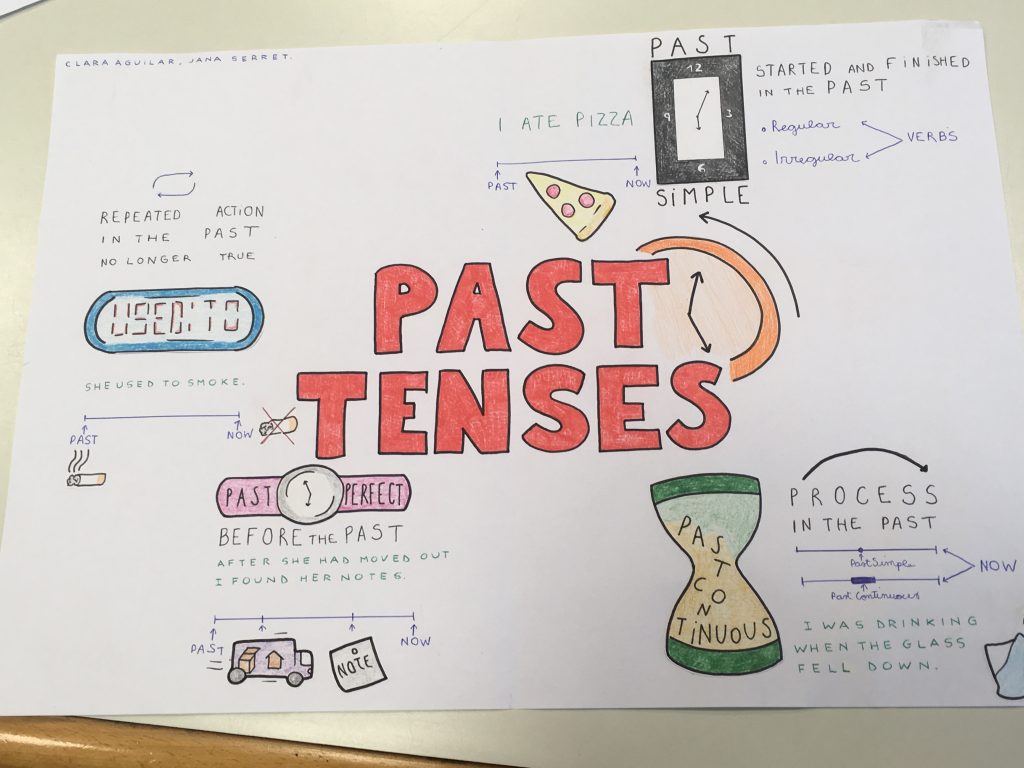 CLARA AGUILAR, JANA SERRET.
PAST
12
3
6
9
SiMPLE
STARTED AND FiNiSHED
IN THE PAST
• Regular
• Irregular
VERBS
I ATE PIZZA
PAST
NOW
REPEATED ACTION
IN THE PAST
NO LONGER TRUE
USED TO
SHE USED TO SMOKE.
PAST
NOW
PAST
TENSES
PAST PERFECT
BEFORE THE PAST
AFTER SHE HAD MOVED OUT
I FOUND HER NOTES.
PAST
NOW
NOTE
PAST
CON
TiNUOUS
PROCESS
IN THE PAST
Past Simple
Past Continuous
NOW
I WAS DRINKING
WHEN THE GLASS
FELL DOWN.